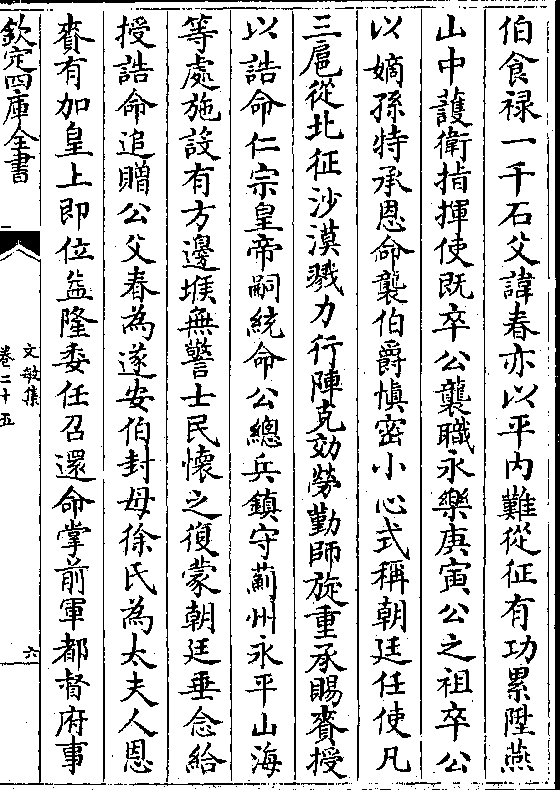 伯食禄一千石父諱春亦以平内難從征有功累陞燕
山中護衛指揮使既卒公襲職永樂庚寅公之祖卒公
以嫡孫特承恩命襲伯爵慎密小心式稱朝廷任使凡
三扈從北征沙漠戮力行陣克効勞勤師旋重承賜賚授
以誥命仁宗皇帝嗣統命公總兵鎮守薊州永平山海
等處施設有方邊堠無警士民懷之復蒙朝廷垂念給
授誥命追贈公父春為遂安伯封母徐氏為太夫人恩
賚有加皇上即位益隆委任召還命掌前軍都督府事
欽定四庫全書
文敏集
卷二十五
六